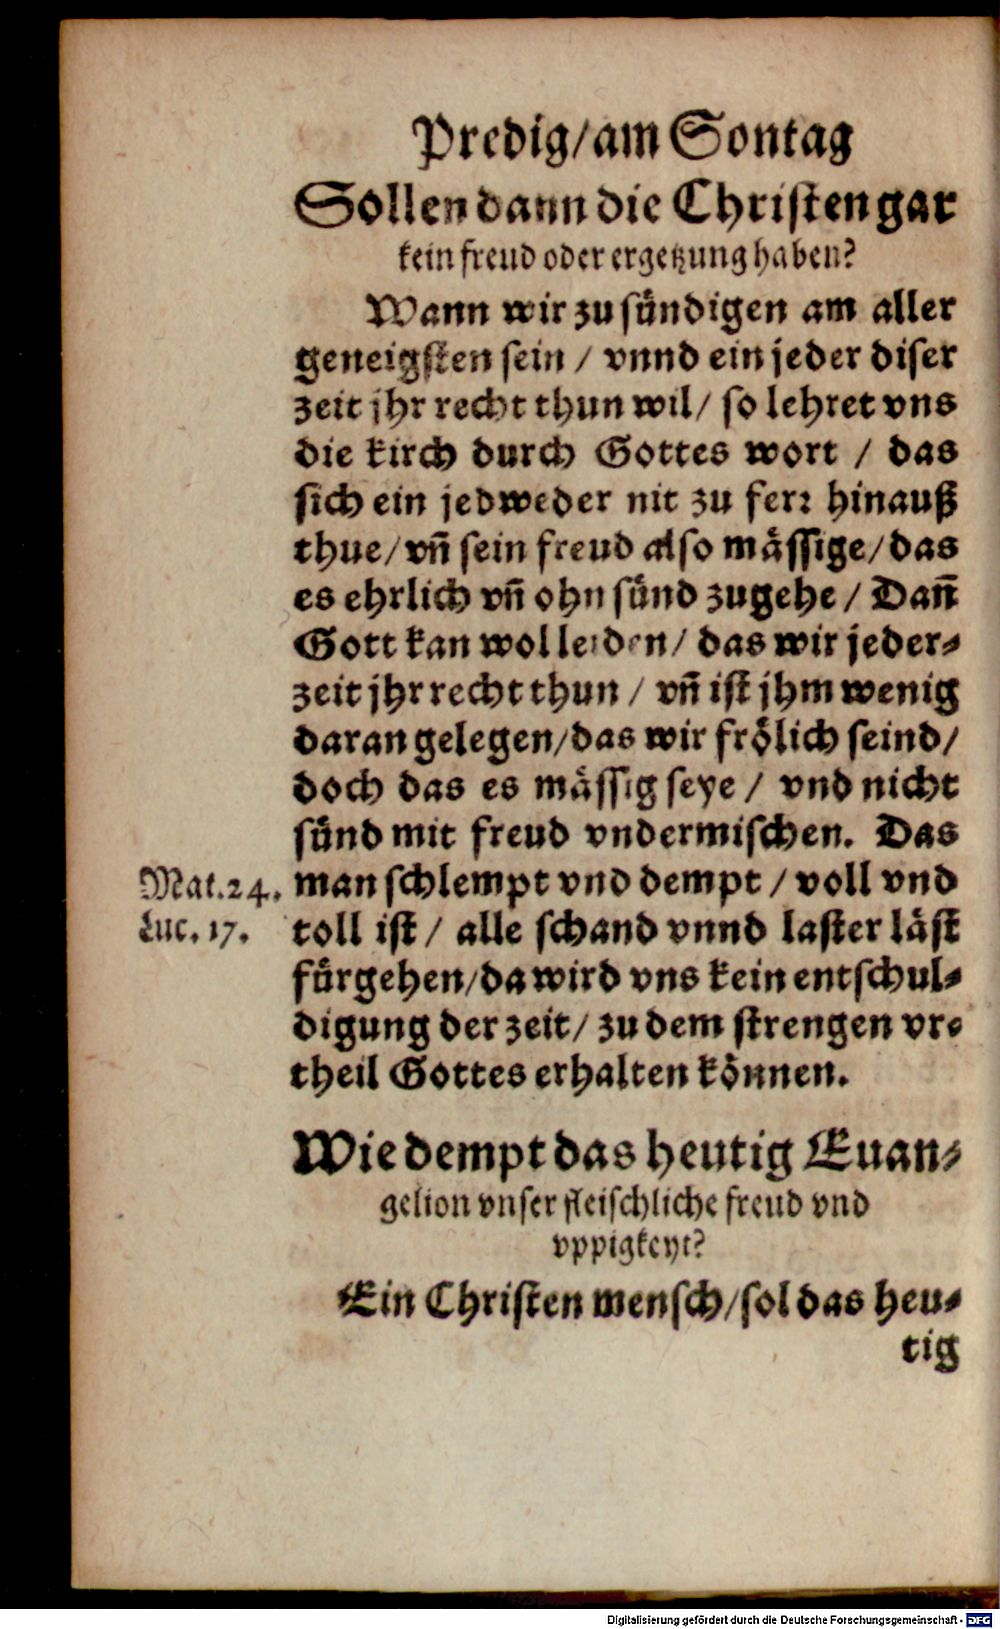 Predig/am Sontag
Sollen dann die Christen gar
kein freud oder ergetzung haben?
Wann wir zu sündigen am aller
geneigsten sein / vnnd ein jeder diser
zeit jhr recht thun wil/ so lehret vns
die kirch durch Gottes wort / das
sich ein jedweder nit zu ferr hinauß
thue/ vñ sein freud also mässige/ das
es ehrlich vñ ohn sünd zugehe / Dañ
Gott kan wol leiden/ das wir jeder-
zeit jhr recht thun / vñ ist jhm wenig
daran gelegen/das wir frölich seind/
doch das es mässig seye / vnd nicht
sünd mit freud vndermischen. Das
Mat.24. man schlempt vnd dempt / voll vnd
Luc. 17. toll ist / alle schand vnnd laster läst
fürgehen/da wird vns kein entschul-
digung der zeit/ zu dem strengen vr-
theil Gottes erhalten können.
Wie dempt das heutig Euan-
gelion vnser fleischliche freud vnd
vppigkeyt?
Ein Christen mensch/sol das heu-
tig
Digitalisierung gefördert durch die Deutsche Forschungsgemeinschaft - DFG